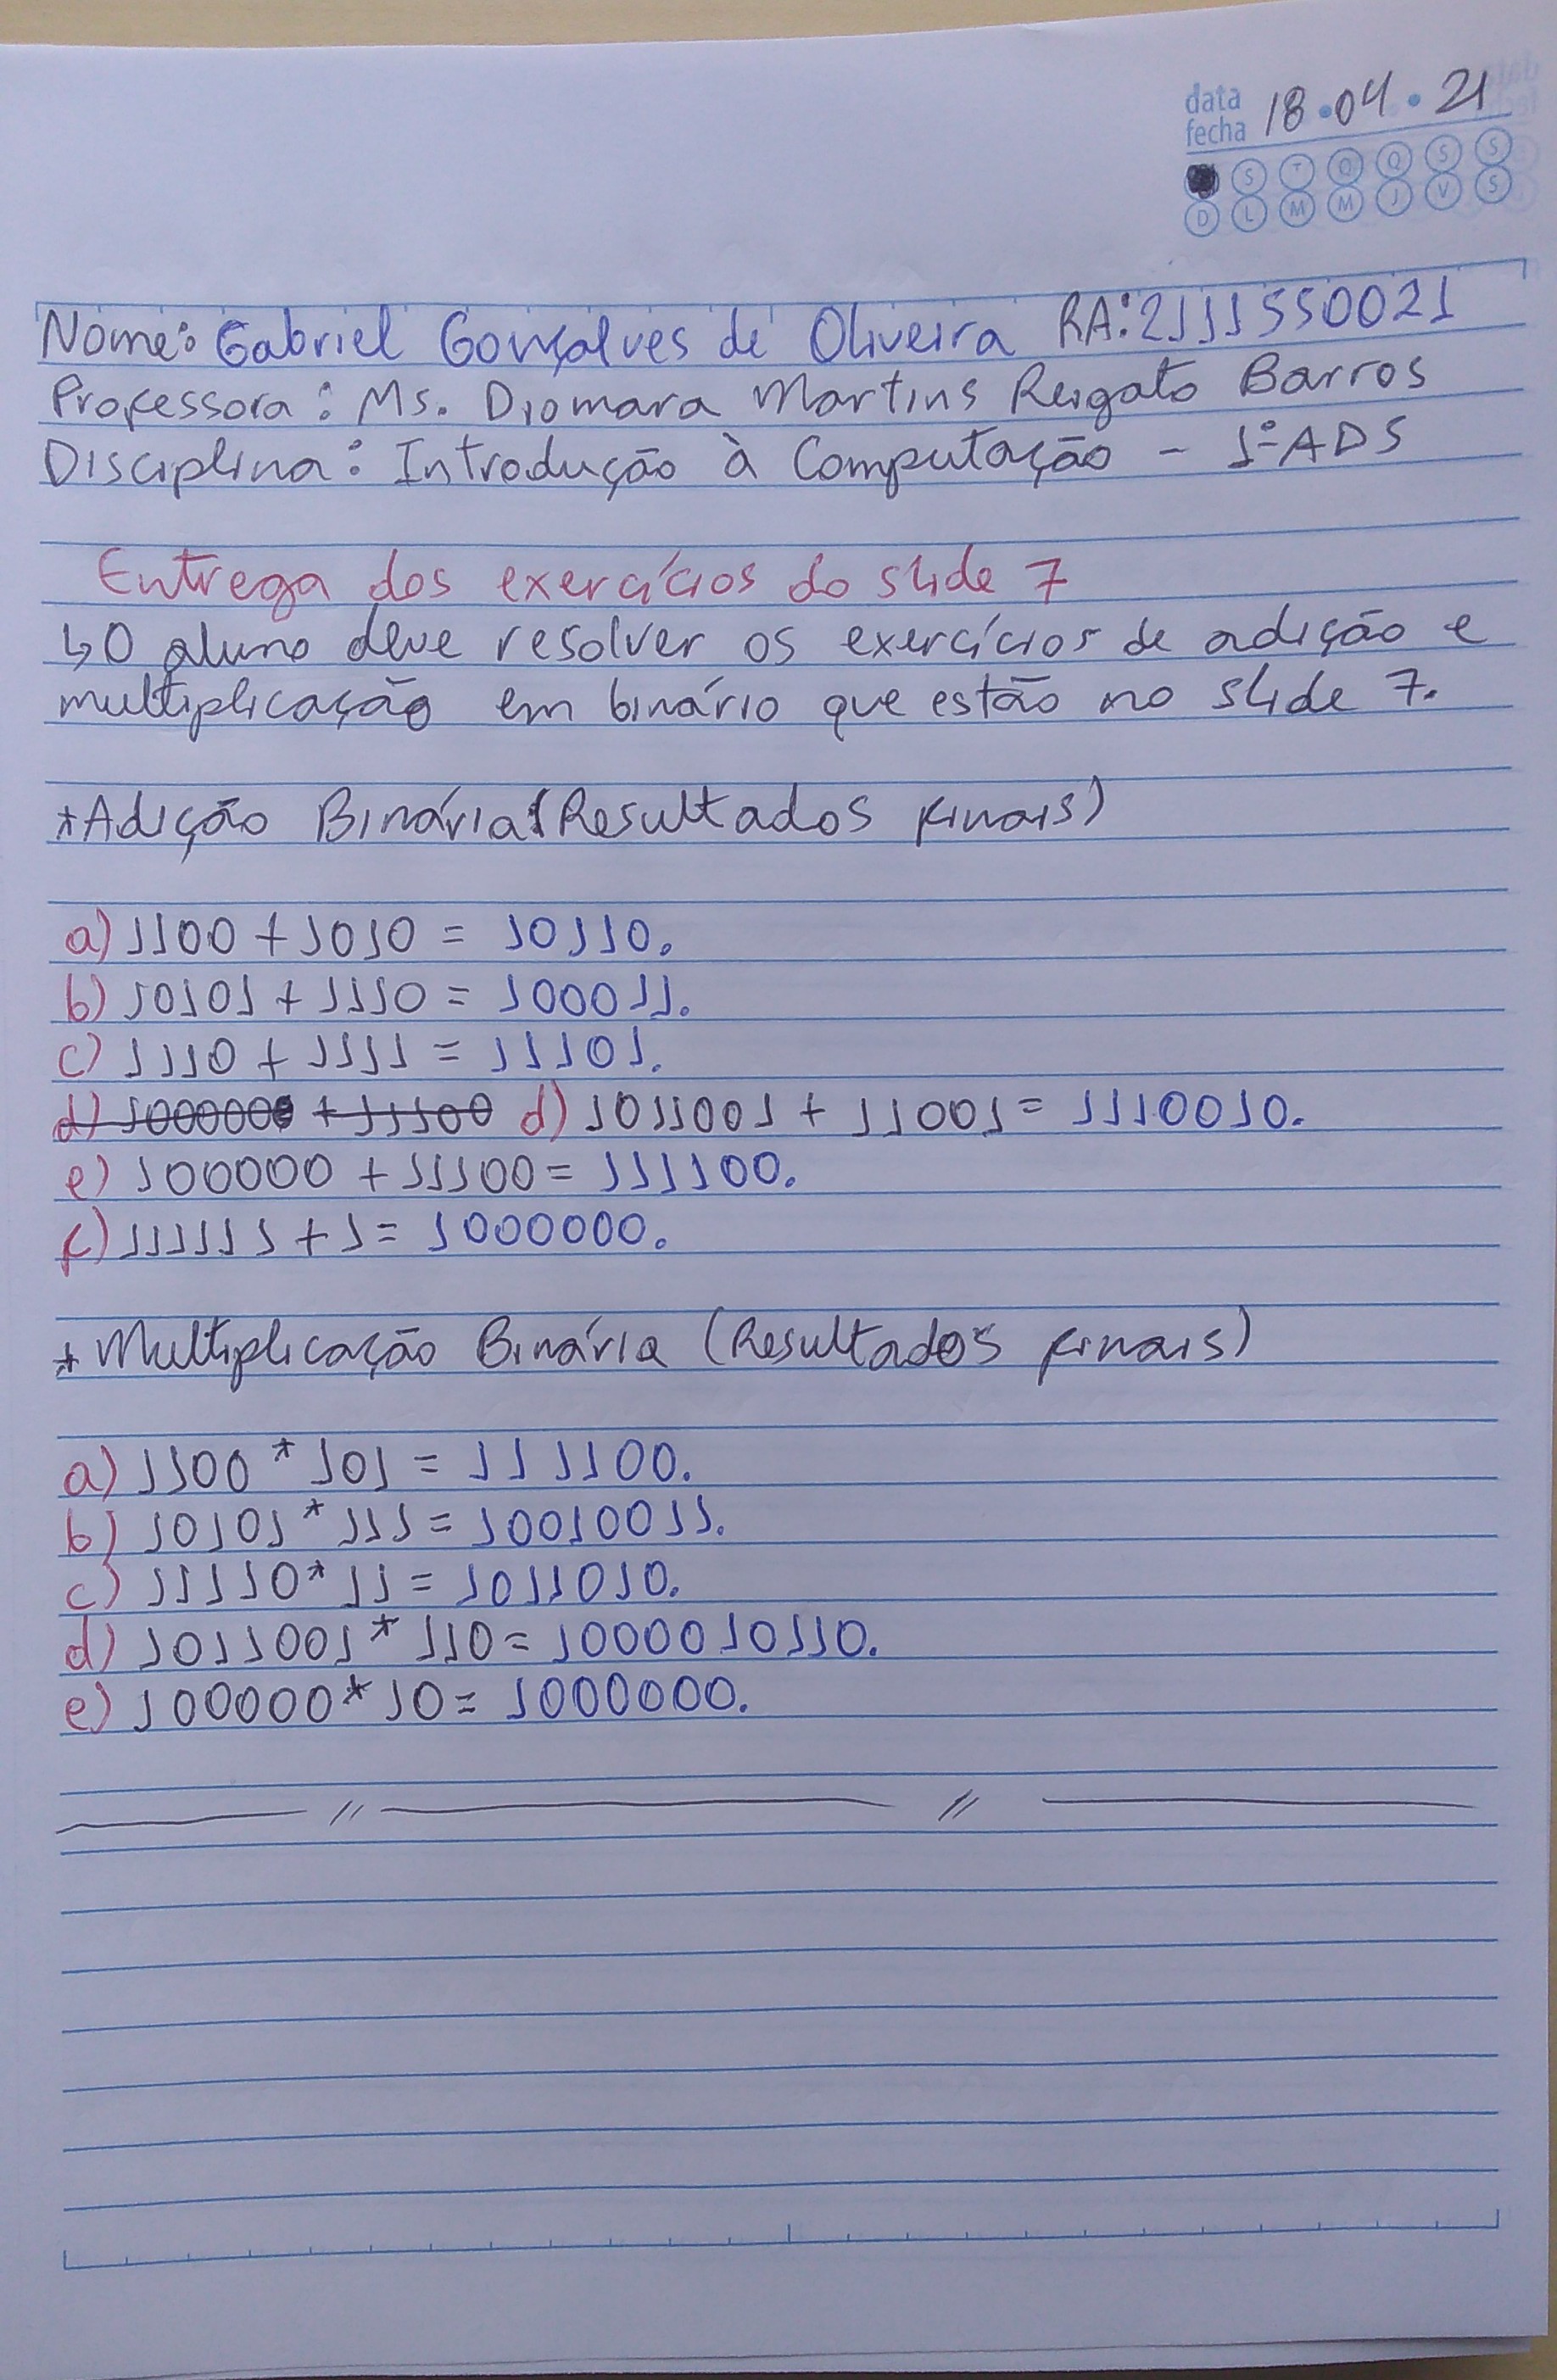 data
fecha 18.04.21
S T Q Q S S
D L M M J V S
Nome: Gabriel Gonçalves de Oliveira RA: 2111550021
Professora: Ms. Diomara Martins Reigato Barros
Disciplina: Introdução à Computação - 1º ADS
Entrega dos exercícios do slide 7
↳ O aluno deve resolver os exercícios de adição e
multiplicação em binário que estão no slide 7.
*Adição Binária (Resultados finais)
a) 1100 + 1010 = 10110.
b) 10101 + 1110 = 100011.
c) 1110 + 1111 = 11101.
d) 1000000 + 11100 d) 1011001 + 11001 = 1110010.
e) 100000 + 11100 = 111100.
f) 111111 + 1 = 1000000.
* Multiplicação Binária (Resultados finais)
a) 1100 * 101 = 111100.
b) 10101 * 111 = 10010011.
c) 11110 * 11 = 1011010.
d) 1011001 * 110 = 1000010110.
e) 100000 * 10 = 1000000.